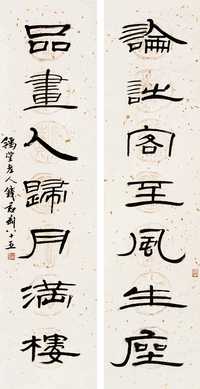 論詩客至風生座
品畫人歸月滿樓
豫堂老人錢君匋八十五